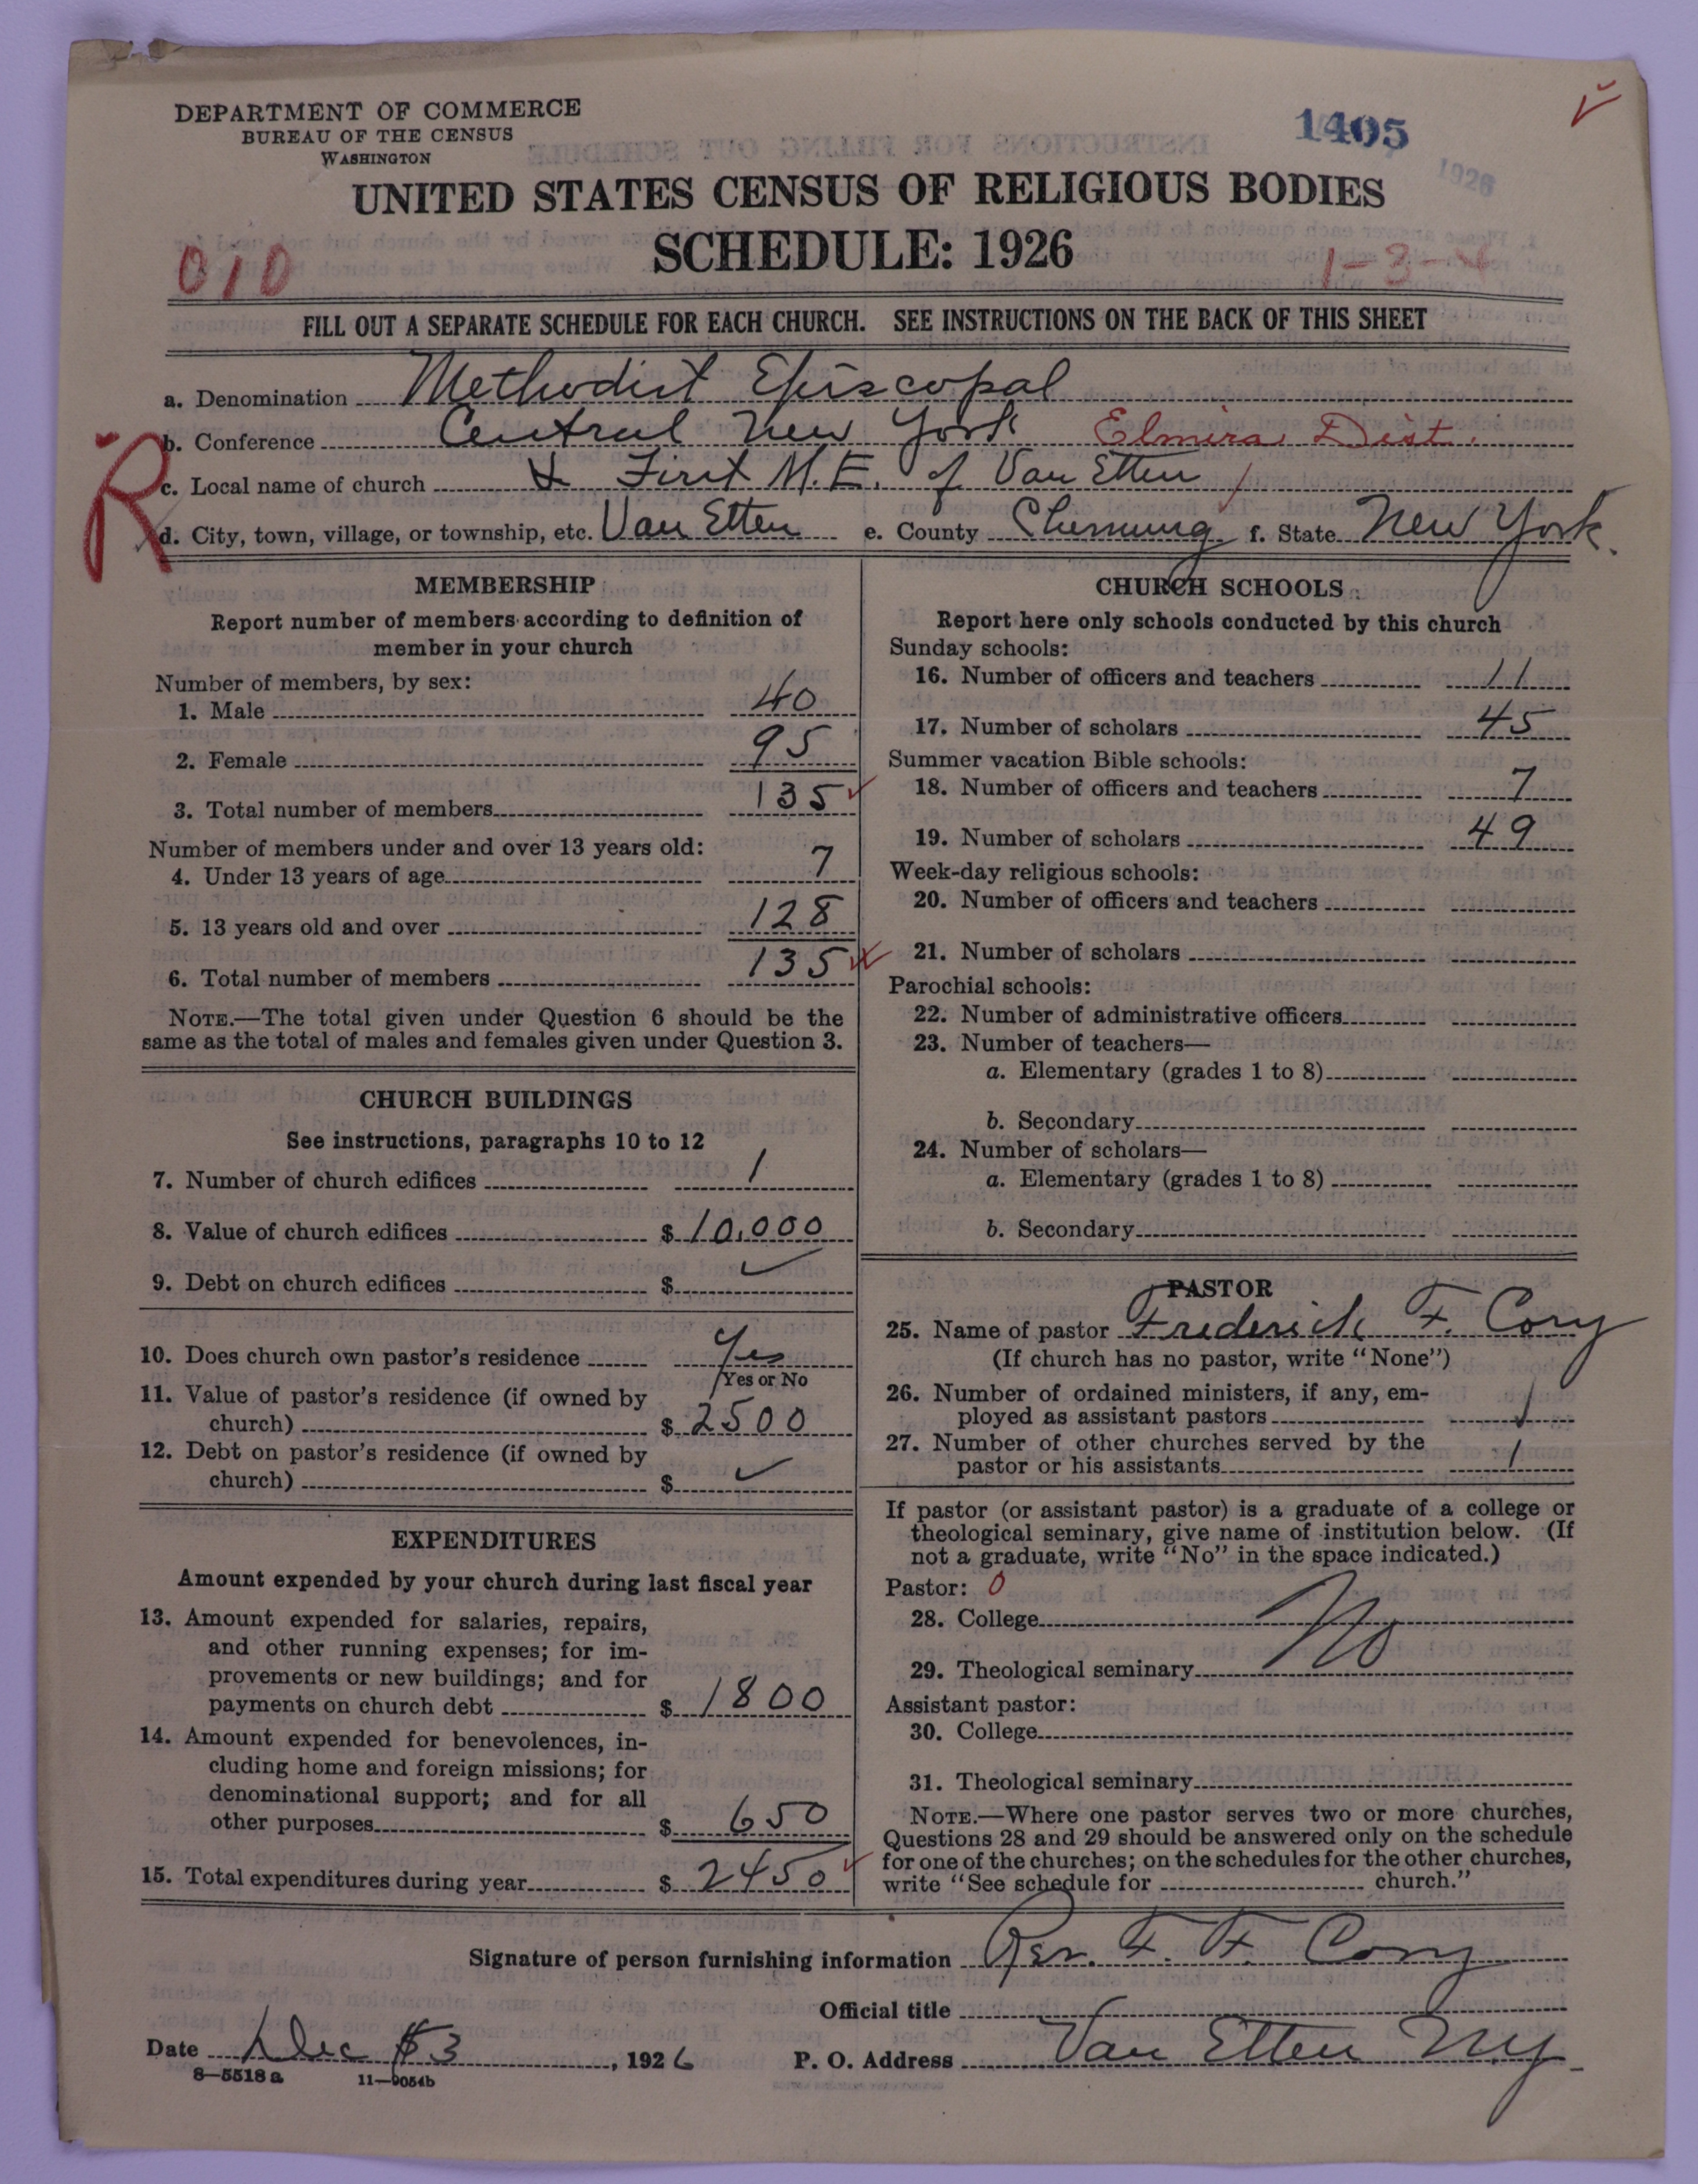 DEPARTMENT OF COMMERCE
BUREAU OF THE CENSUS
WASHINGTON
1405
1926
UNITED STATES CENSUS OF RELIGIOUS BODIES
SCHEDULE: 1926
010
1-3-4
FILL OUT A SEPARATE SCHEDULE FOR EACH CHURCH. SEE INSTRUCTIONS ON THE BACK OF THIS SHEET
a. Denomination Methodist Episcopal
b. Conference Central New York Elmira Dist.
R
c. Local name of church First M.E. of Van Etten
d. City, town, village, or township, etc. Van Etten e. County Chemung f. State New York.
MEMBERSHIP
Report number of members according to definition of
member in your church
Number of members, by sex:
1. Male 40
2. Female 95
3. Total number of members 135
Number of members under and over 13 years old:
4. Under 13 years of age 7
5. 13 years old and over 128
6. Total number of members 135
NOTE.—The total given under Question 6 should be the
same as the total of males and females given under Question 3.
CHURCH BUILDINGS
See instructions, paragraphs 10 to 12
7. Number of church edifices 1
8. Value of church edifices $ 10,000
9. Debt on church edifices $
10. Does church own pastor's residence Yes
Yes or No
11. Value of pastor's residence (if owned by
church) $ 2500
12. Debt on pastor's residence (if owned by
church) $
EXPENDITURES
Amount expended by your church during last fiscal year
13. Amount expended for salaries, repairs,
and other running expenses; for im-
provements or new buildings; and for
payments on church debt $ 1800
14. Amount expended for benevolences, in-
cluding home and foreign missions; for
denominational support; and for all
other purposes $ 650
15. Total expenditures during year $ 2450
CHURCH SCHOOLS
Report here only schools conducted by this church
Sunday schools:
16. Number of officers and teachers 11
17. Number of scholars 45
Summer vacation Bible schools:
18. Number of officers and teachers 7
19. Number of scholars 49
Week-day religious schools:
20. Number of officers and teachers
21. Number of scholars
Parochial schools:
22. Number of administrative officers
23. Number of teachers—
a. Elementary (grades 1 to 8)
b. Secondary
24. Number of scholars—
a. Elementary (grades 1 to 8)
b. Secondary
PASTOR
25. Name of pastor Frederick F. Cory
(If church has no pastor, write "None")
26. Number of ordained ministers, if any, em-
ployed as assistant pastors
27. Number of other churches served by the
pastor or his assistants 1
If pastor (or assistant pastor) is a graduate of a college or
theological seminary, give name of institution below. (If
not a graduate, write "No" in the space indicated.)
Pastor: 0
28. College No
29. Theological seminary
Assistant pastor:
30. College
31. Theological seminary
NOTE.—Where one pastor serves two or more churches,
Questions 28 and 29 should be answered only on the schedule
for one of the churches; on the schedules for the other churches,
write "See schedule for church."
Signature of person furnishing information Rev. F. F. Cory
Official title
Date Dec 3, 1926 P. O. Address Van Etten N.Y.
8-5518a 11-9054b